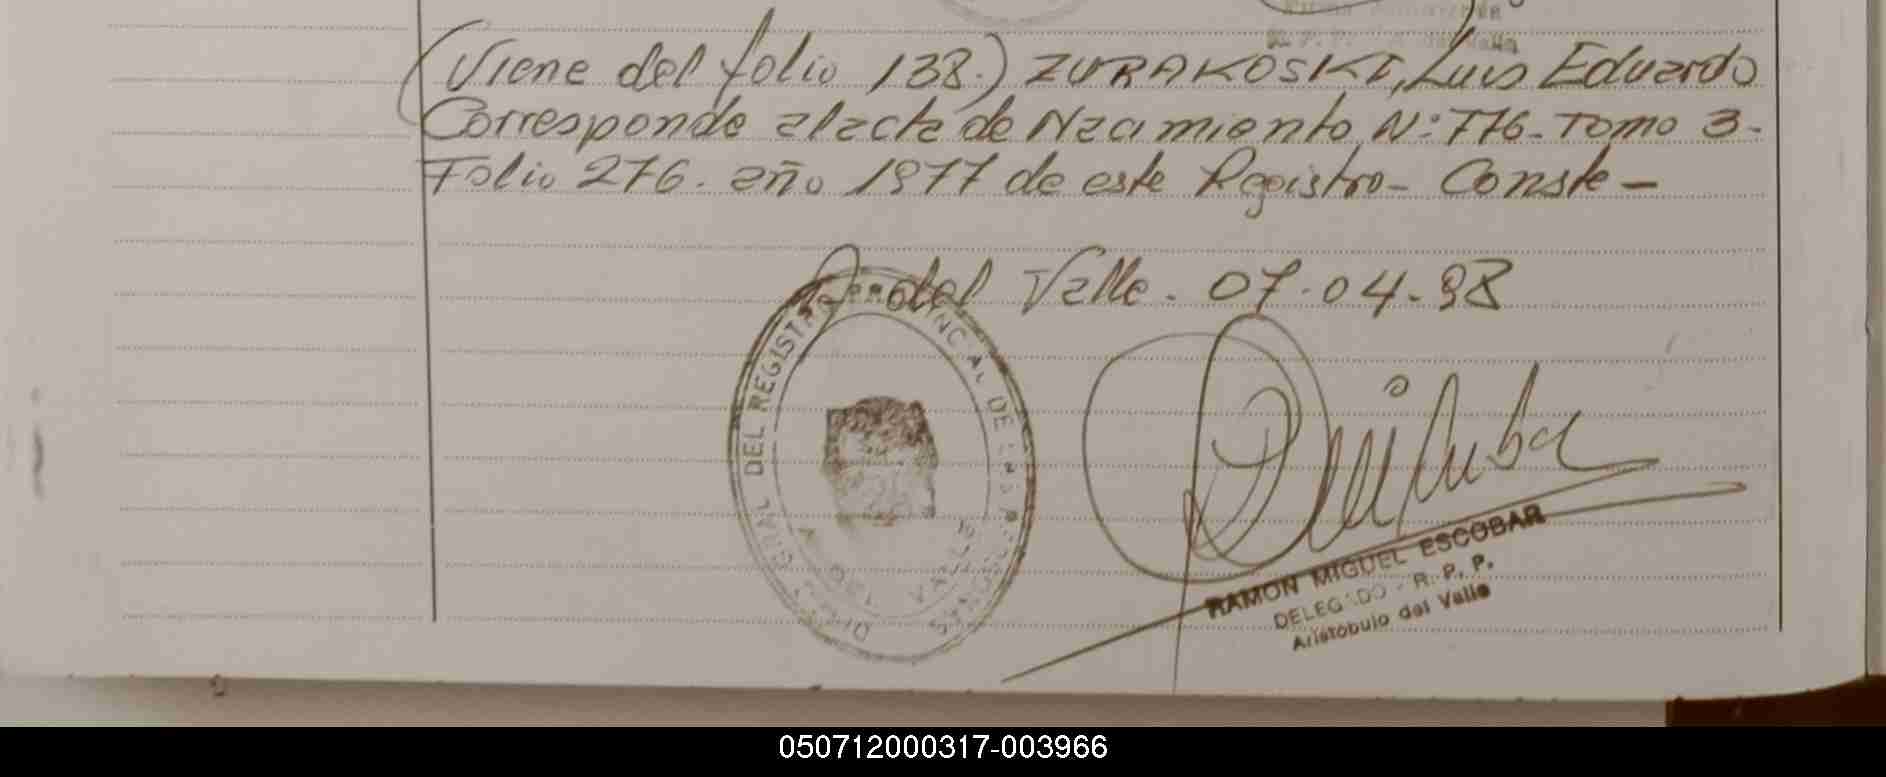 (Viene del folio 138.) ZURAKOSKI, Luis Eduardo
Corresponde al acta de Nacimiento N: 776- Tomo 3-
Folio 276. año 1977 de este Registro- Conste-
A. del Valle. 07-04-98
DEL REGISTRO PROVINCIAL DE LAS PERSONAS
A. DEL VALLE
RAMON MIGUEL ESCOBAR
DELEGADO - R. P. P.
Aristobulo del Valle
050712000317-003966